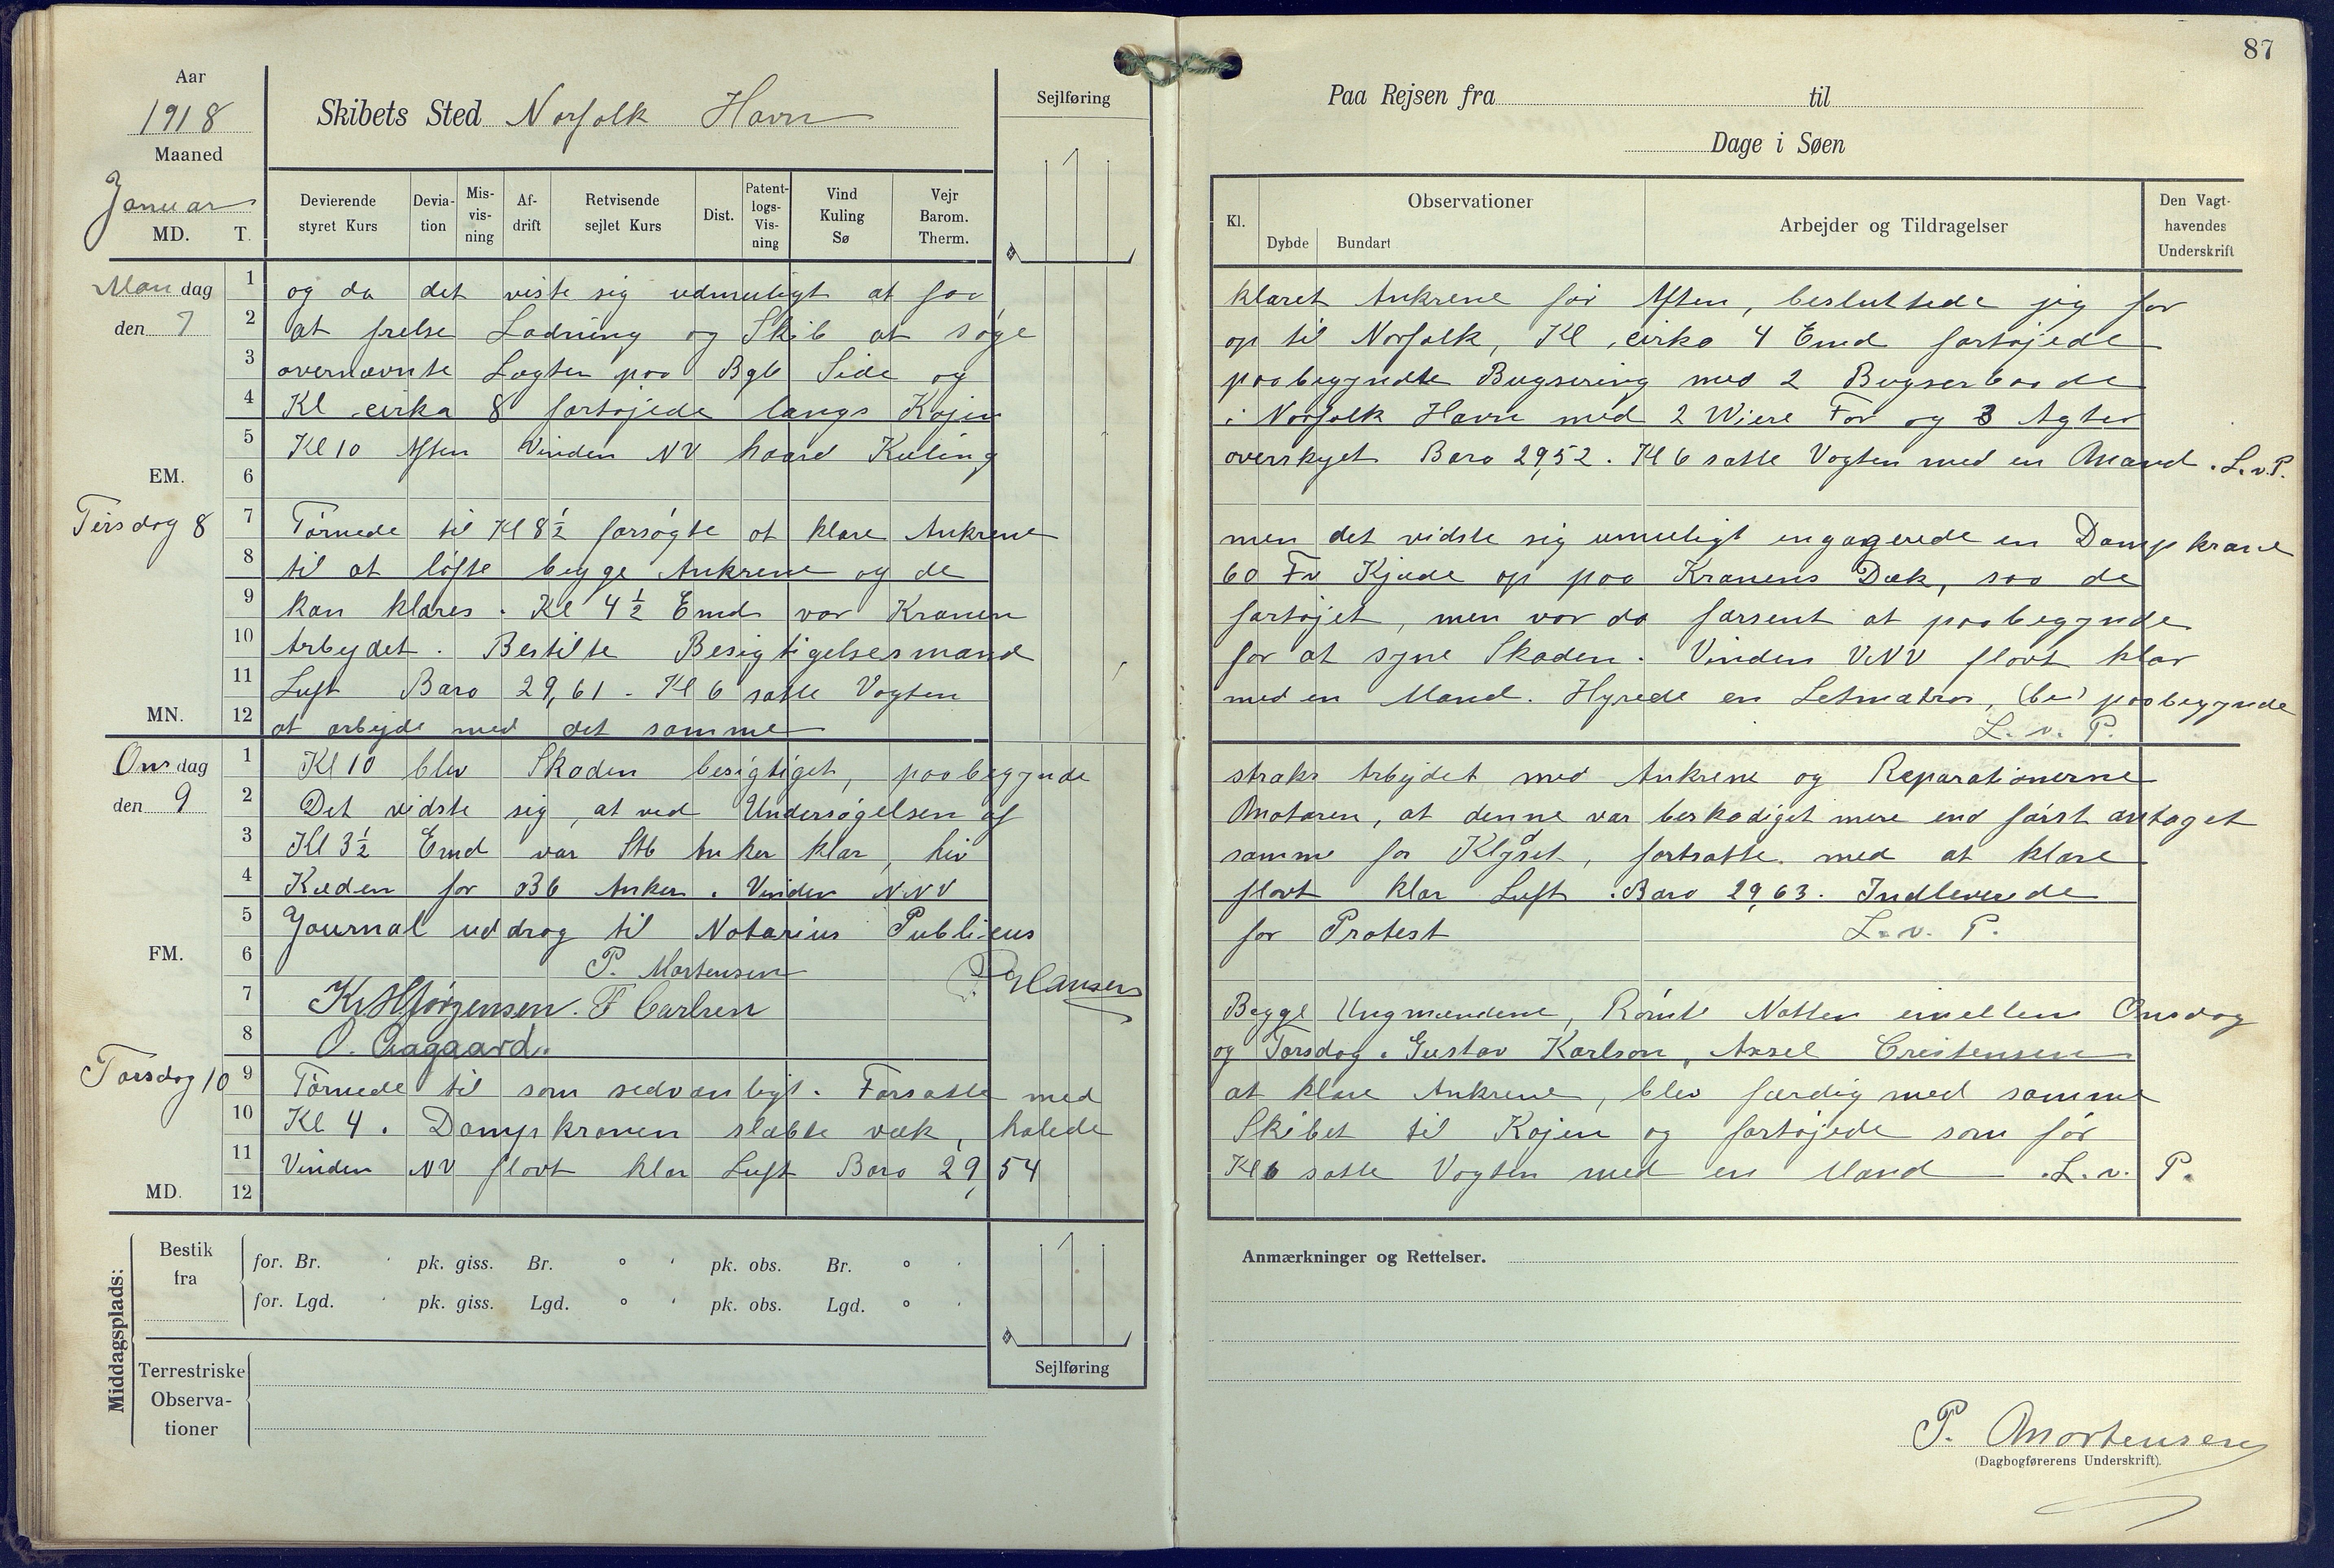 87
Aar
1918
Maaned
Januar
MD. T.
Skibets Sted Norfolk Havn
Sejlføring
Devierende styret Kurs
Devia-tion
Mis-vis-ning
Af-drift
Retvisende sejlet Kurs
Dist.
Patent-logs-Vis-ning
Vind Kuling Sø
Vejr Barom. Therm.
Paa Rejsen fra til
Dage i Søen
Kl.
Observationer
Dybde Bundart
Arbejder og Tildragelser
Den Vagt-havendes Underskrift
Mandag den 7
1 og da det viste sig udmuligt at faa klaret Ankrene før Aften, besluttede jeg for
2 at frelse Ladning og Skib at søge op til Norfolk, Kl cirka 4 Emd fortøjede
3 overnævnte Lægter paa Bgb Side og paabegyndte Bugsering med 2 Bugserbaade
4 Kl cirka 8 fortøjede langs Kajen i Norfolk Havn med 2 Wiere For og 3 Agter
5 Kl 10 Aften Vinden NV haard Kuling overskyet Baro 29,52. Kl 6 satte Vagten med en Mand. L.v.P.
EM. 6
Tirsdag 8
7 Tørnede til Kl 8½ forsøgte at klare Ankrene men det vidste sig umuligt engagerede en Dampkrane
8 til at løfte begge Ankrene og de 60 Fv Kjæde op paa Kranens Dæk, saa de
9 kan klares. Kl 4½ Emd var Kranen fortøjet, men var da forsent at paabegynde
10 Arbejdet. Bestilte Besigtigelsesmand for at syne Skaden. Vinden VNV flovt klar
11 Luft Baro 29,61 - Kl 6 satte Vagten med en Mand. Hyrede en Letmatros, (be) paabegynde
MN. 12 at arbejde med det samme L. v. P.
Onsdag den 9
1 Kl 10 blev Skaden besigtiget, paabegynde straks Arbejdet med Ankrene og Reparationerne
2 Det vidste sig, at ved Undersøgelsen af Motoren, at denne var beskadiget mere end først antaget
3 Kl 3½ Emd var Stb Anker klar, hiv samme for Klyset, fortsatte med at klare
4 Kæden for Bb Anker. Vinden NNV flovt klar Luft. Baro 29,63. Indleverede
5 Journal uddrag til Notarius Publicus for Protest L. v. P.
FM. 6 P. Mortensen
Hansen
7 F Carlsen Begge Ungmændene, Rømte Natten imellem Onsdag
8 O. Aagaard. og Torsdag. Gustav Karlson, Axsel Crestensen
Torsdag 10
9 Tørnede til som sedvanligt. Forsatte med at klare Ankrene, blev færdig med samme
10 Kl 4. Dampkranen slæbte væk, halede Skibet til Kajen og fortøjede som før
11 Vinden NV flovt klar Luft Baro 29,54 Kl 6 satte Vagten med en Mand L. v. P.
MD. 12
Middagsplads:
Bestik fra
for. Br. ' pk. giss. Br. ° ' pk. obs. Br. ° '
for. Lgd. ' pk. giss. Lgd. ° ' pk. obs. Lgd. ° '
Terrestriske Observa-tioner
Sejlføring
Anmærkninger og Rettelser.
P. Mortensen
(Dagbogførerens Underskrift).